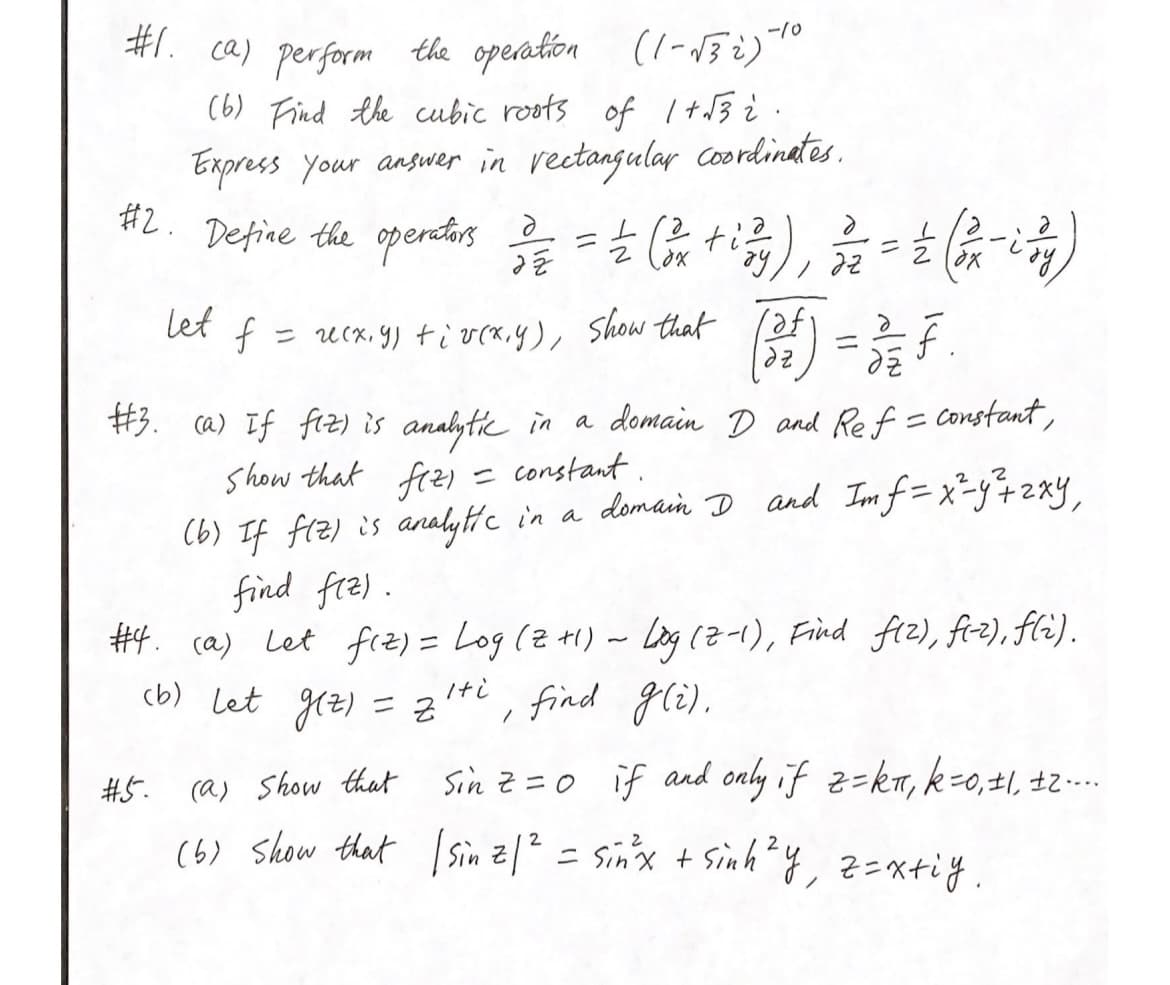 #1. (a) perform the operation (1-√3 i)⁻¹⁰
(b) Find the cubic roots of 1+√3 i.
Express your answer in rectangular coordinates.
#2. Define the operators ∂/∂z̄ = 1/2 (∂/∂x + i ∂/∂y), ∂/∂z = 1/2 (∂/∂x - i ∂/∂y)
Let f = u(x,y) + i v(x,y), show that \overline{(∂f/∂z)} = ∂/∂z̄ f̄.
#3. (a) If f(z) is analytic in a domain D and Re f = constant,
show that f(z) = constant.
(b) If f(z) is analytic in a domain D and Im f = x²-y²+2xy,
find f(z).
#4. (a) Let f(z) = Log (z+1) - Log (z-1), Find f(2), f(-2), f(i).
(b) Let g(z) = z¹⁺ⁱ, find g(i).
#5. (a) Show that Sin z = 0 if and only if z=kπ, k=0,±1, ±2....
(b) Show that |Sin z|² = Sin²x + Sinh²y, z=x+iy.